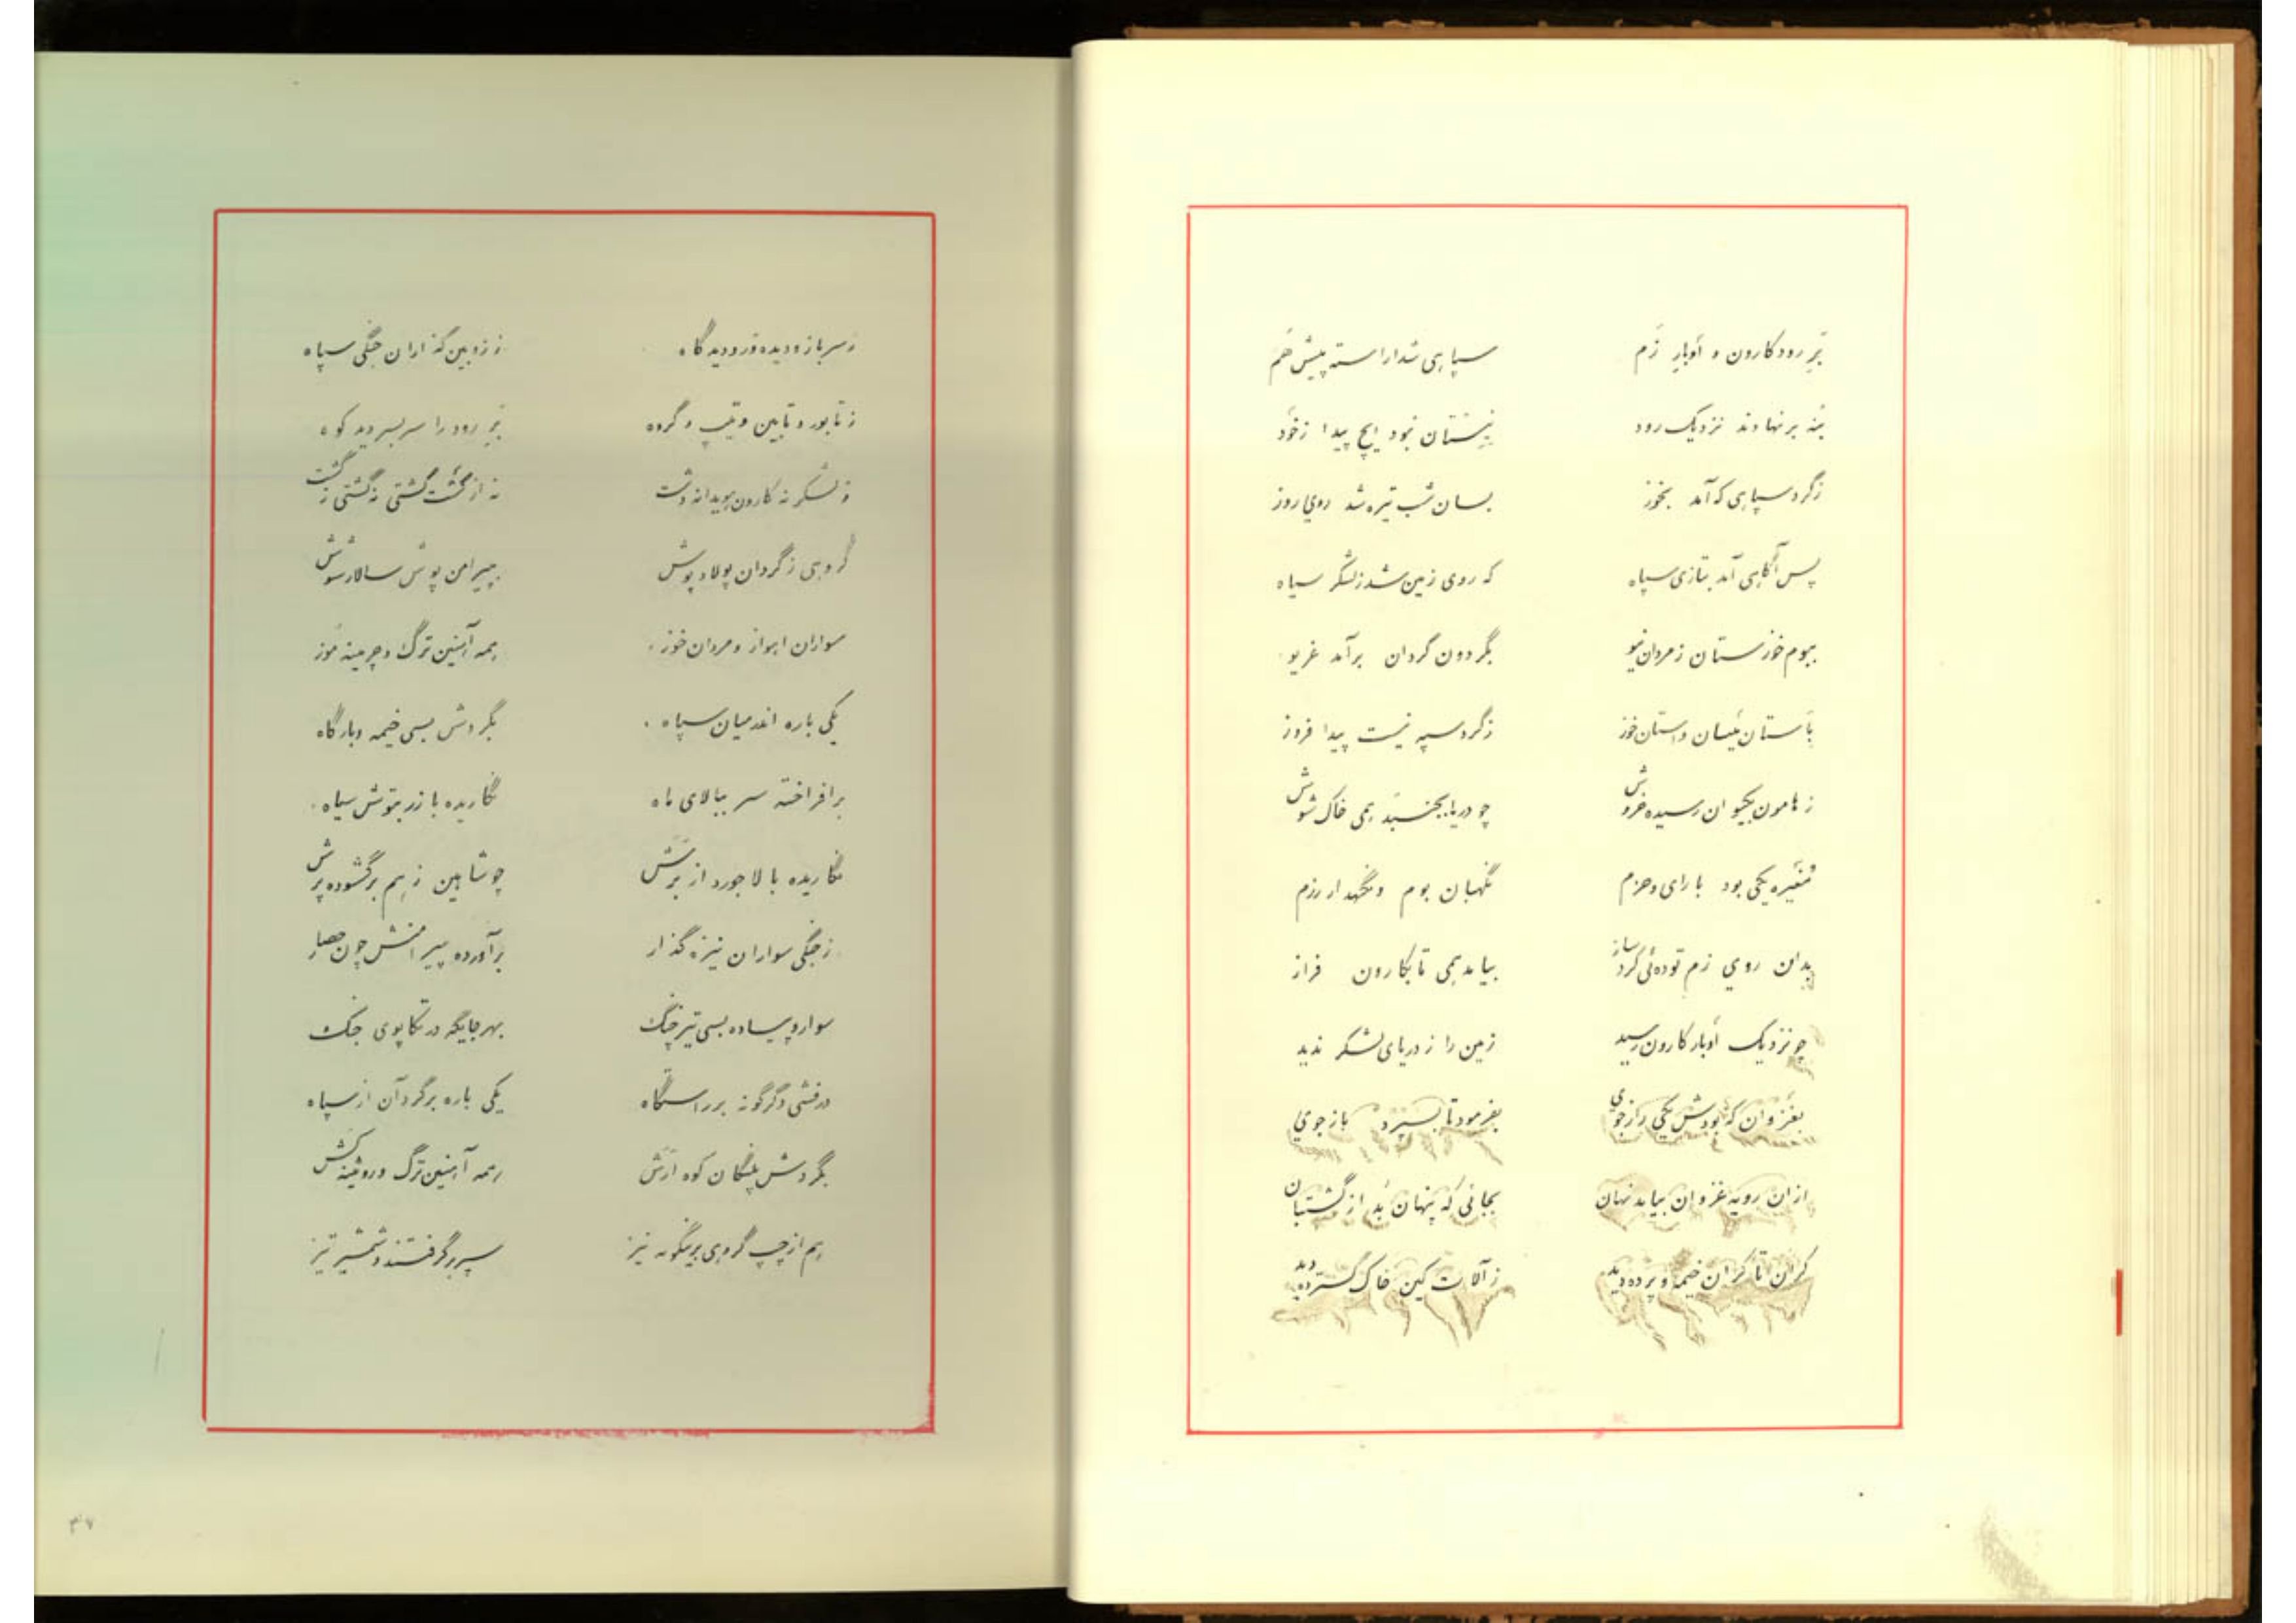 بَرِ رود کارون و اَوبارِ زَم سپاهی شد آراسته پیش هَم
بُنه برنهادند نزدیک رود نیستان نبود ایچ پیدا ز خَود
ز گرد سپاهی که آمد بخوز بسان شب تیره شد روی روز
پس آگاهی آمد بتازی سپاه که روی زمین شد ز لشگر سیاه
ببوم خوزستان ز مردان نیو بگردون گردان برآمد غریو
بَاستان مَیسان و استان خوز ز گرد سپه نیست پیدا فروز
ز هامون بکیوان رسیده خروش چو دریا بجنبد همی خاک شوش
مُغَیره یکی بود با رای و حزم نگهبان بوم و نگهدار رزم
بدان روی زم توده‌ئی گرد ساز بیامد همی تا بکارون فراز
چو نزدیک اَوبار کارون رسید زمین را ز دریای لشگر ندید
بغَزوان که بودش یکی رازجوی بفرمود تا بسپرد بازجوی
ازان رویه غزوان بیامد نهان بجائی که پنهان بُد از گشتبان
کران تا کران خیمه و پرده دید ز آلات کین خاک گسترده دید
ز سرباز و دیده‌ور و دیدگاه ز زوبین گذاران جنگی سپاه
ز تابور و تابین و تیپ و گروه بَرِ رود را سربسر دید کوه
ز لشگر نه کارون هویدا نه دشت نه از گشت گشتی نه گشتی ز گشت
گروهی ز گردان پولادپوش بپیرامن پوش سالار شوش
سواران اهواز و مردان خوز همه آهنین ترگ و چرمینه مُوز
یکی باره اندر میان سپاه بگردش بسی خیمه و بارگاه
برافراخته سر ببالای ماه نگاریده با زر بتوش سیاه
نگاریده با لاجورد از برش چو شاهین ز هم برگشوده پرش
ز جنگی سواران نیزه گذار برآورده پیرامنش چون حصار
سوار و پیاده بسی تیزچنگ بهر جایگه در تکاپوی جنگ
درفشی دگرگونه بر راستگاه یکی باره برگرد آن از سپاه
بگردش پلنگان کوه ارَش همه آهنین ترگ و روئینه کَش
هم از چپ گروهی برینگونه نیز سپر برگرفتند و شمشیر تیز
۳۷